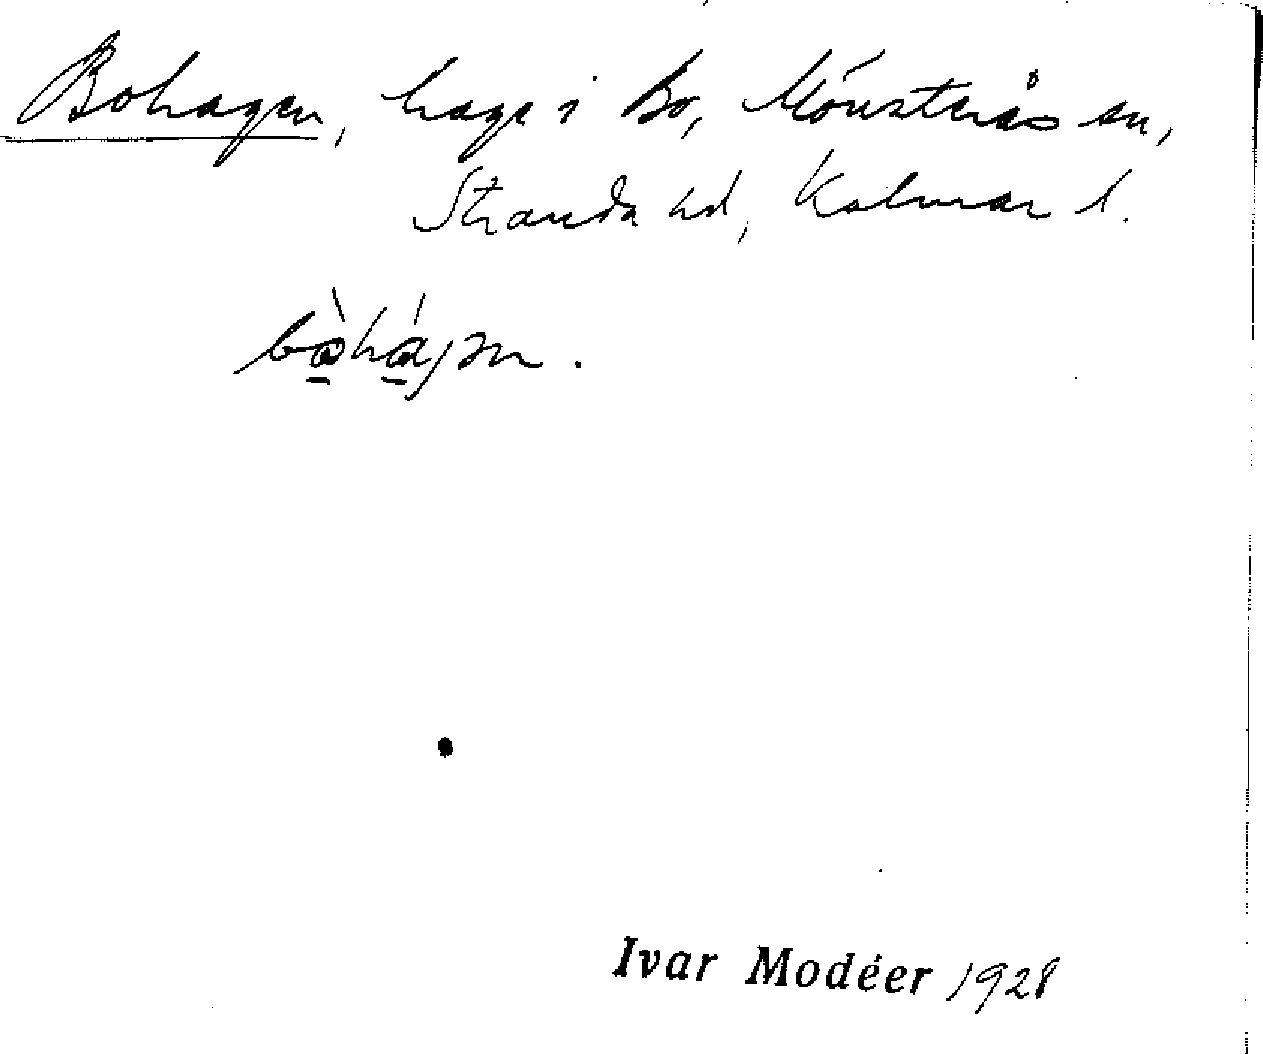 Bohagen, hage i Bo, Mönsterås sn,
Stranda hd, Kalmar l.
Ivar Modéer 1928